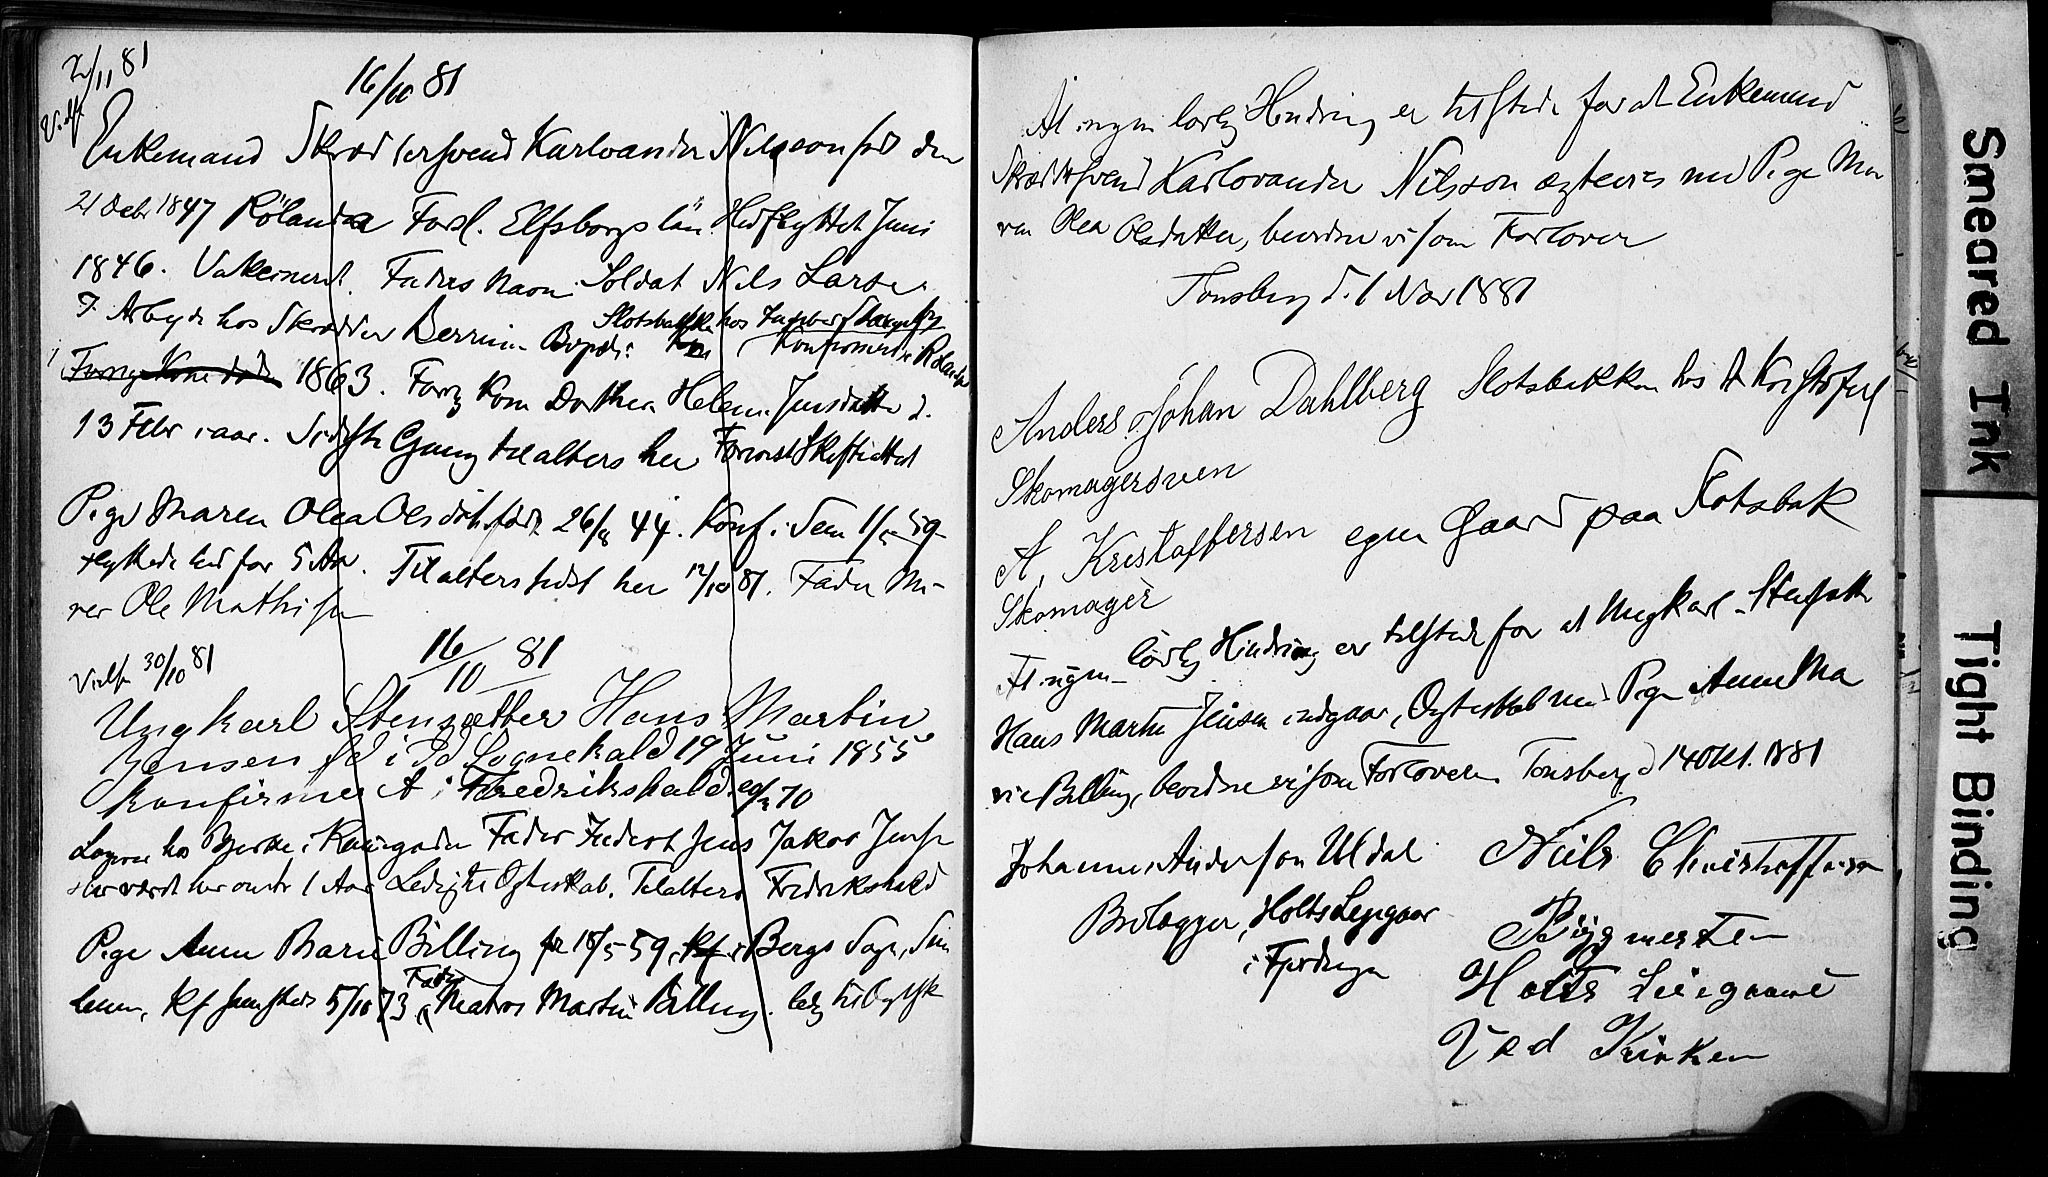 2/11 81
Viedt
16/10 81
Enkemand Skrædersvend Karlvander Nilsson fød den
21 Decbr 1847 Rölanda Forsl. Elfsborgs län. Hidflyttet Juni
1846. Vakcineret. Faders Navn Soldat Nils Larse
I Arbeyde hos Skrædder Bopæl: Slotsbakken hos
Konfirmeret i Rölanda
i Forrige Kone død 1863. Forrig Kone Dorthea Helene Jensdatter d.
13 Febr i aar. Sidste Gang tilalters her
Pige Maren Olea Olsdatt. født 26/8 44. Konf. i Sem 1/ 59
flyttede hid for 5 Aar. Tilalters sidst her 12/10 81. Fader Mu-
rer Ole Mathisen
Vielse 30/10 81
16/10 81
Ungkarl Stensætter Hans Martin
Jensen fd i Id Sognekald 19 Juni 1855
konfirmeret i Fredrikshald 70
Logerer hos Bjerke i Fader Jens Jakob Jense
Har været her omtr 1 Aar Ledig til Ægteskab. Tilalters Fredrikshald
Pige Anne Marie Billing fd 18/5 59, i Bergs Sogn, Sm
lenene, Kf sammesteds 5/10 73, Fader Matros Martin Billing. ledig til Ægtesk
At ingen lovlig Hindring er tilstede for at Enkemand
Skrædersvend Karlovander Nilsson ægtevies med Pige Ma
ren Olea Olsdatter, bevidne vi som Forlovere
Tønsberg d. 1 Nov 1881
Anders Johan Dahlberg Slotsbakken hos A Kristofers
Skomagersven
A. Kristoffersen egen Gaard paa Slotsbak
Skomager
At ingen lovlig Hindring er tilstede for at Ungkarl Stensætter
Hans Martin Jensen indgaar Ægteskab med Pige Anne Ma
rie Billing, bevidne vi som Forlovere Tønsberg d 14 Okt. 1881
Johannes Anderson Uldal
Brolægger, Holts Leiegaar
i Fjerdingen
Niels Christoffersen
Bygmester
Holts Leiegaard
Ved Kirken
Smeared Ink
Tight Binding